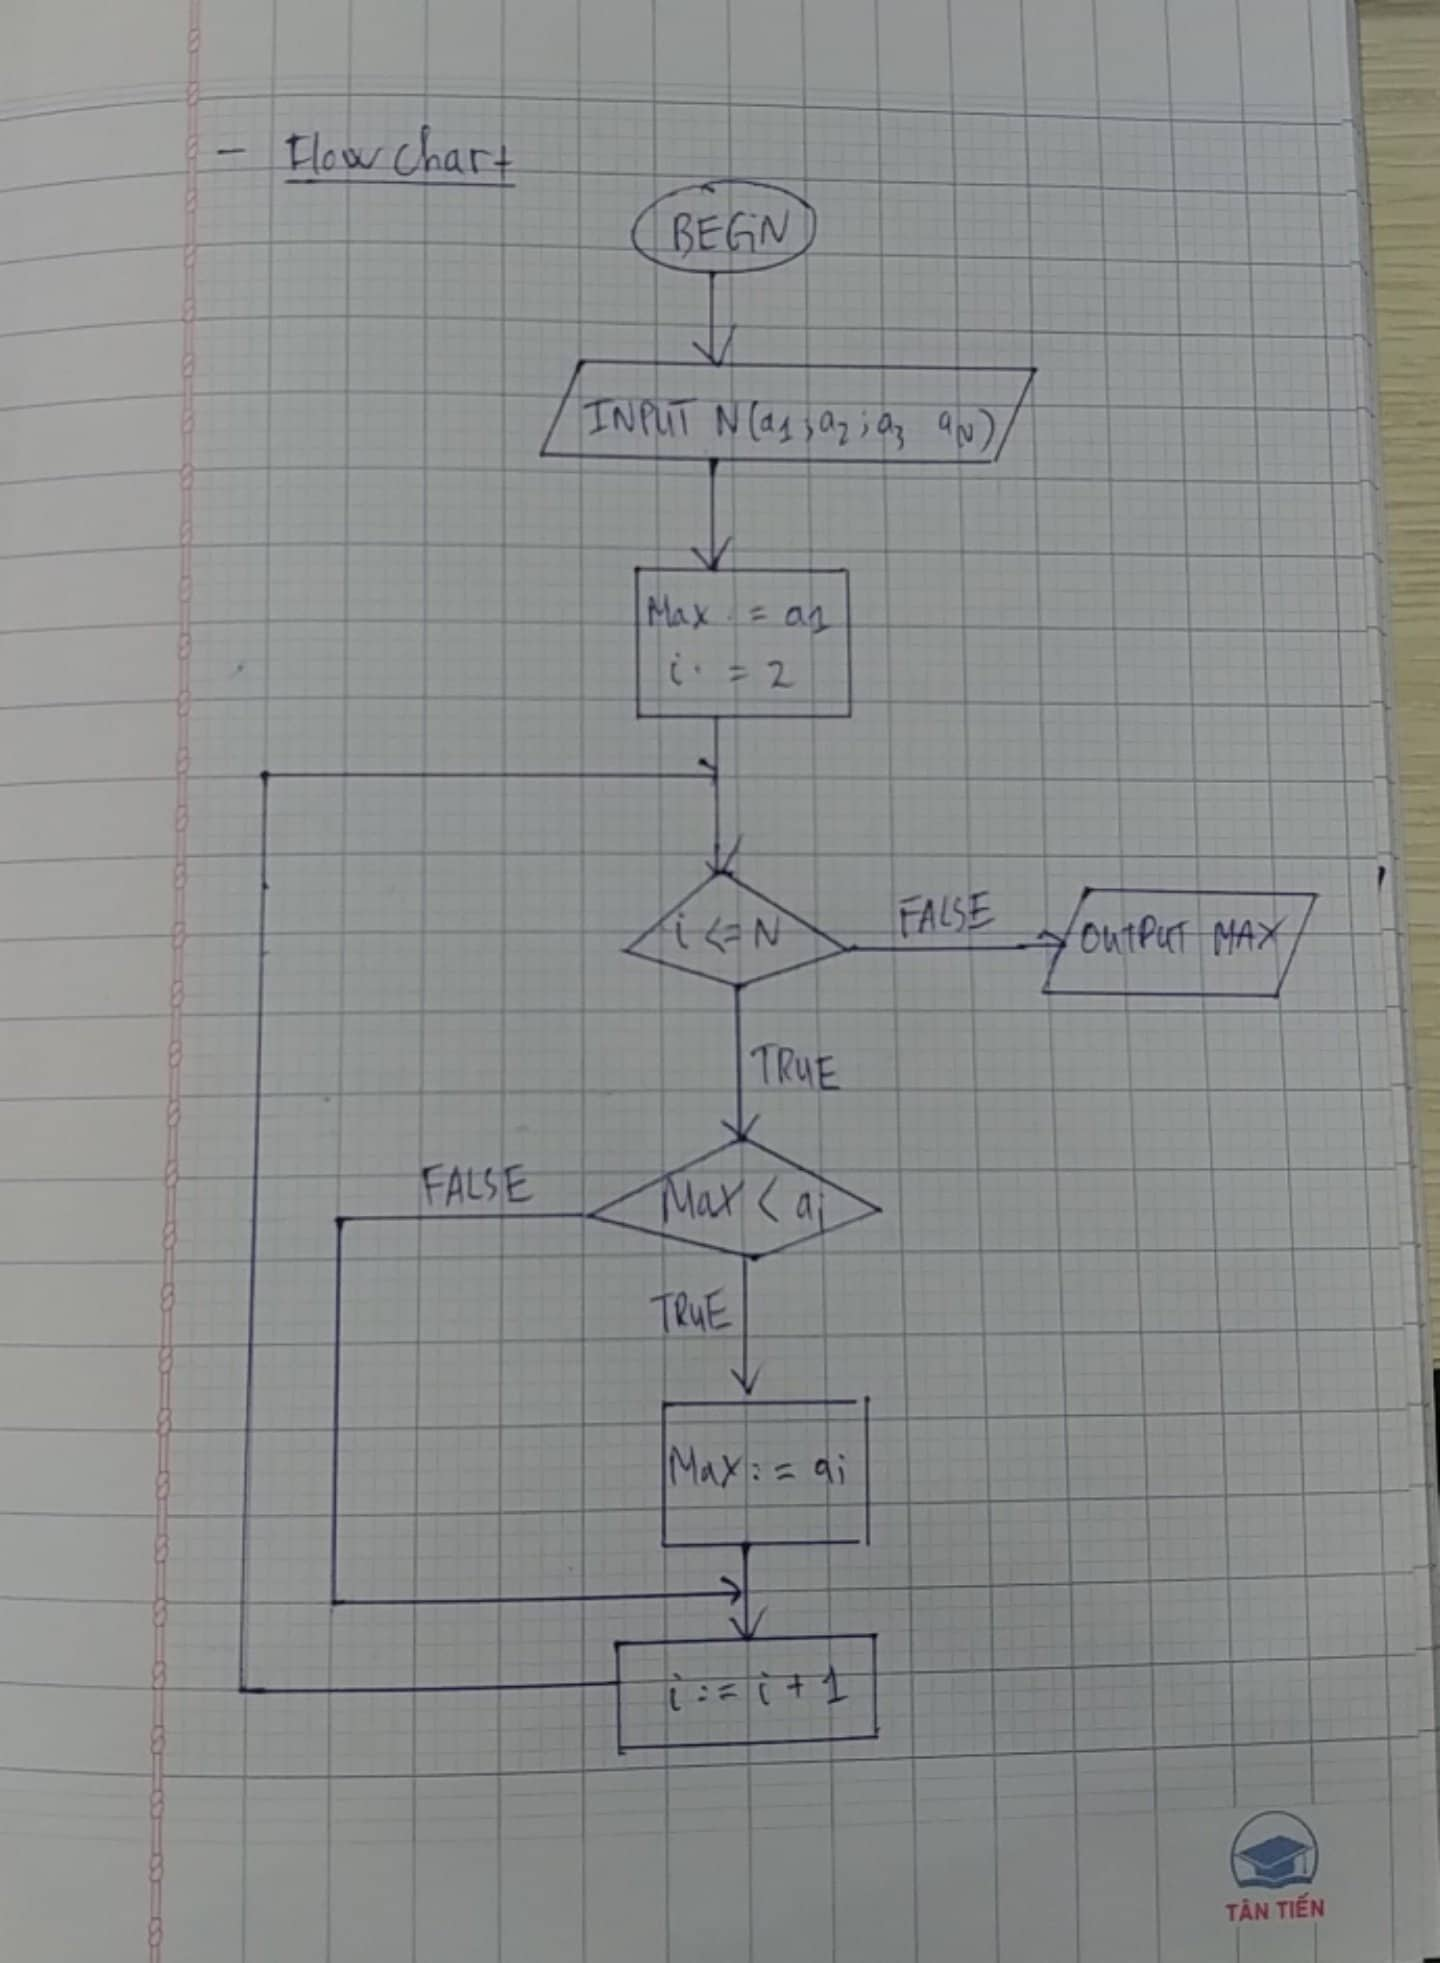 - Flow Chart
BEGiN
INPUT N(a1;a2;a3 aN)
Max := a1
i := 2
i <= N
FALSE
OUTPUT MAX
TRUE
FALSE
Max < ai
TRUE
Max := ai
i := i + 1
TÂN TIẾN